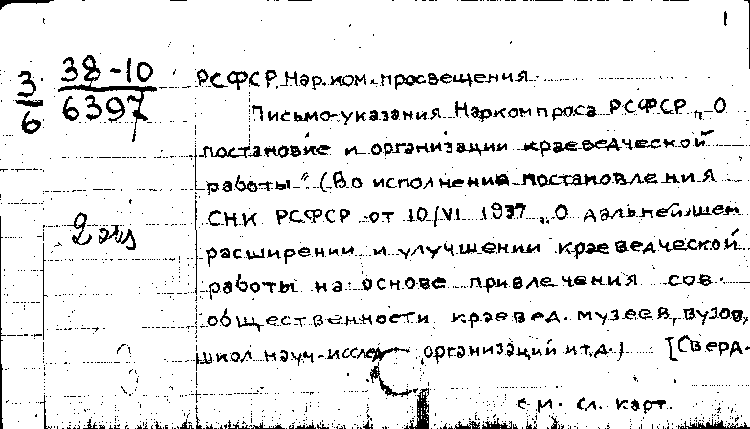 1
3/6 38-10/6397
РСФСР. Нар.ком. просвещения.
Письмо-указания Наркомпроса РСФСР „О
постановке и организации краеведческой
работы". (Во исполнение постановления
СНК РСФСР от 10/VI 1937 „О дальнейшем
расширении и улучшении краеведческой
работы на основе привлечения сов.
общественности краевед. музеев, вузов,
школ науч.-исслед. организаций и т.д.) [Сверд-
см. сл. карт.
2 экз